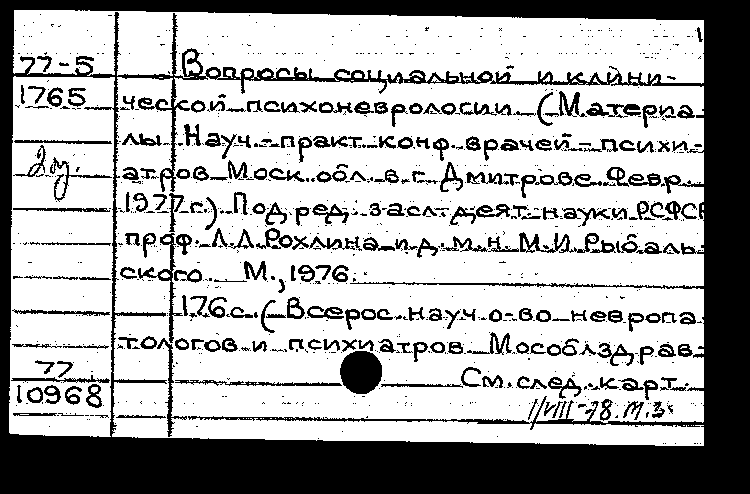 1
77-5 Вопросы социальной и клини-
1765 ческой психоневрологии. (Материа-
лы Науч.-практ. конф. врачей-психи-
2 эу. атров Моск. обл. в г. Дмитрове. Февр.
1977 г.) Под ред. засл. деят. науки РСФСР
проф. Л.Л. Рохлина и д. м. н. М.И. Рыбаль-
ского. М., 1976.
176 с. (Всерос. науч. о-во невропа-
тологов и психиатров. Мособлздрав-
77 См. след. карт.
10968 1/VIII-78. М.З.